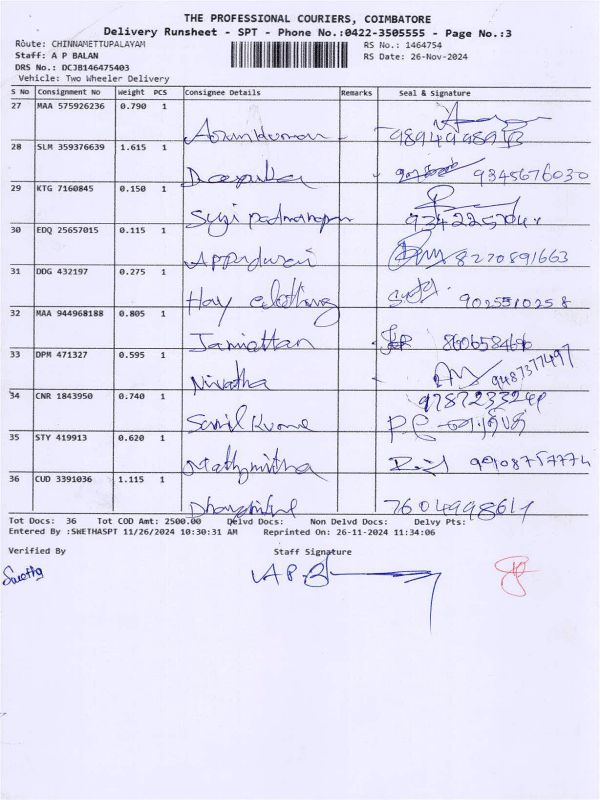 THE PROFESSIONAL COURIERS, COIMBATORE
Delivery Runsheet - SPT - Phone No.:0422-3505555 - Page No.:3
Route: CHINNAMETTUPALAYAM
RS No.: 1464754
Staff: A P BALAN
RS Date: 26-Nov-2024
DRS No.: DCJB146475403
Vehicle: Two Wheeler Delivery
S No Consignment No Weight PCS Consignee Details Remarks Seal & Signature
27 MAA 575926236 0.790 1
Arunkumar 9894998913
28 SLM 359376639 1.615 1
Deepika 9345676030
29 KTG 7160845 0.150 1
30 EDQ 25657015 0.115 1
Appadurai 8220891663
31 DDG 432197 0.275 1
Hay clothing 9025510258
32 MAA 944968188 0.805 1
33 DPM 471327 0.595 1
Nivatha 9487377497
34 CNR 1843950 0.740 1
9787233249
35 STY 419913 0.620 1
36 CUD 3391036 1.115 1
7604998617
Tot Docs: 36 Tot COD Amt: 2500.00 Delvd Docs: Non Delvd Docs: Delvy Pts:
Entered By :SWETHASPT 11/26/2024 10:30:31 AM Reprinted On: 26-11-2024 11:34:06
Verified By Staff Signature
Swetha A P. B